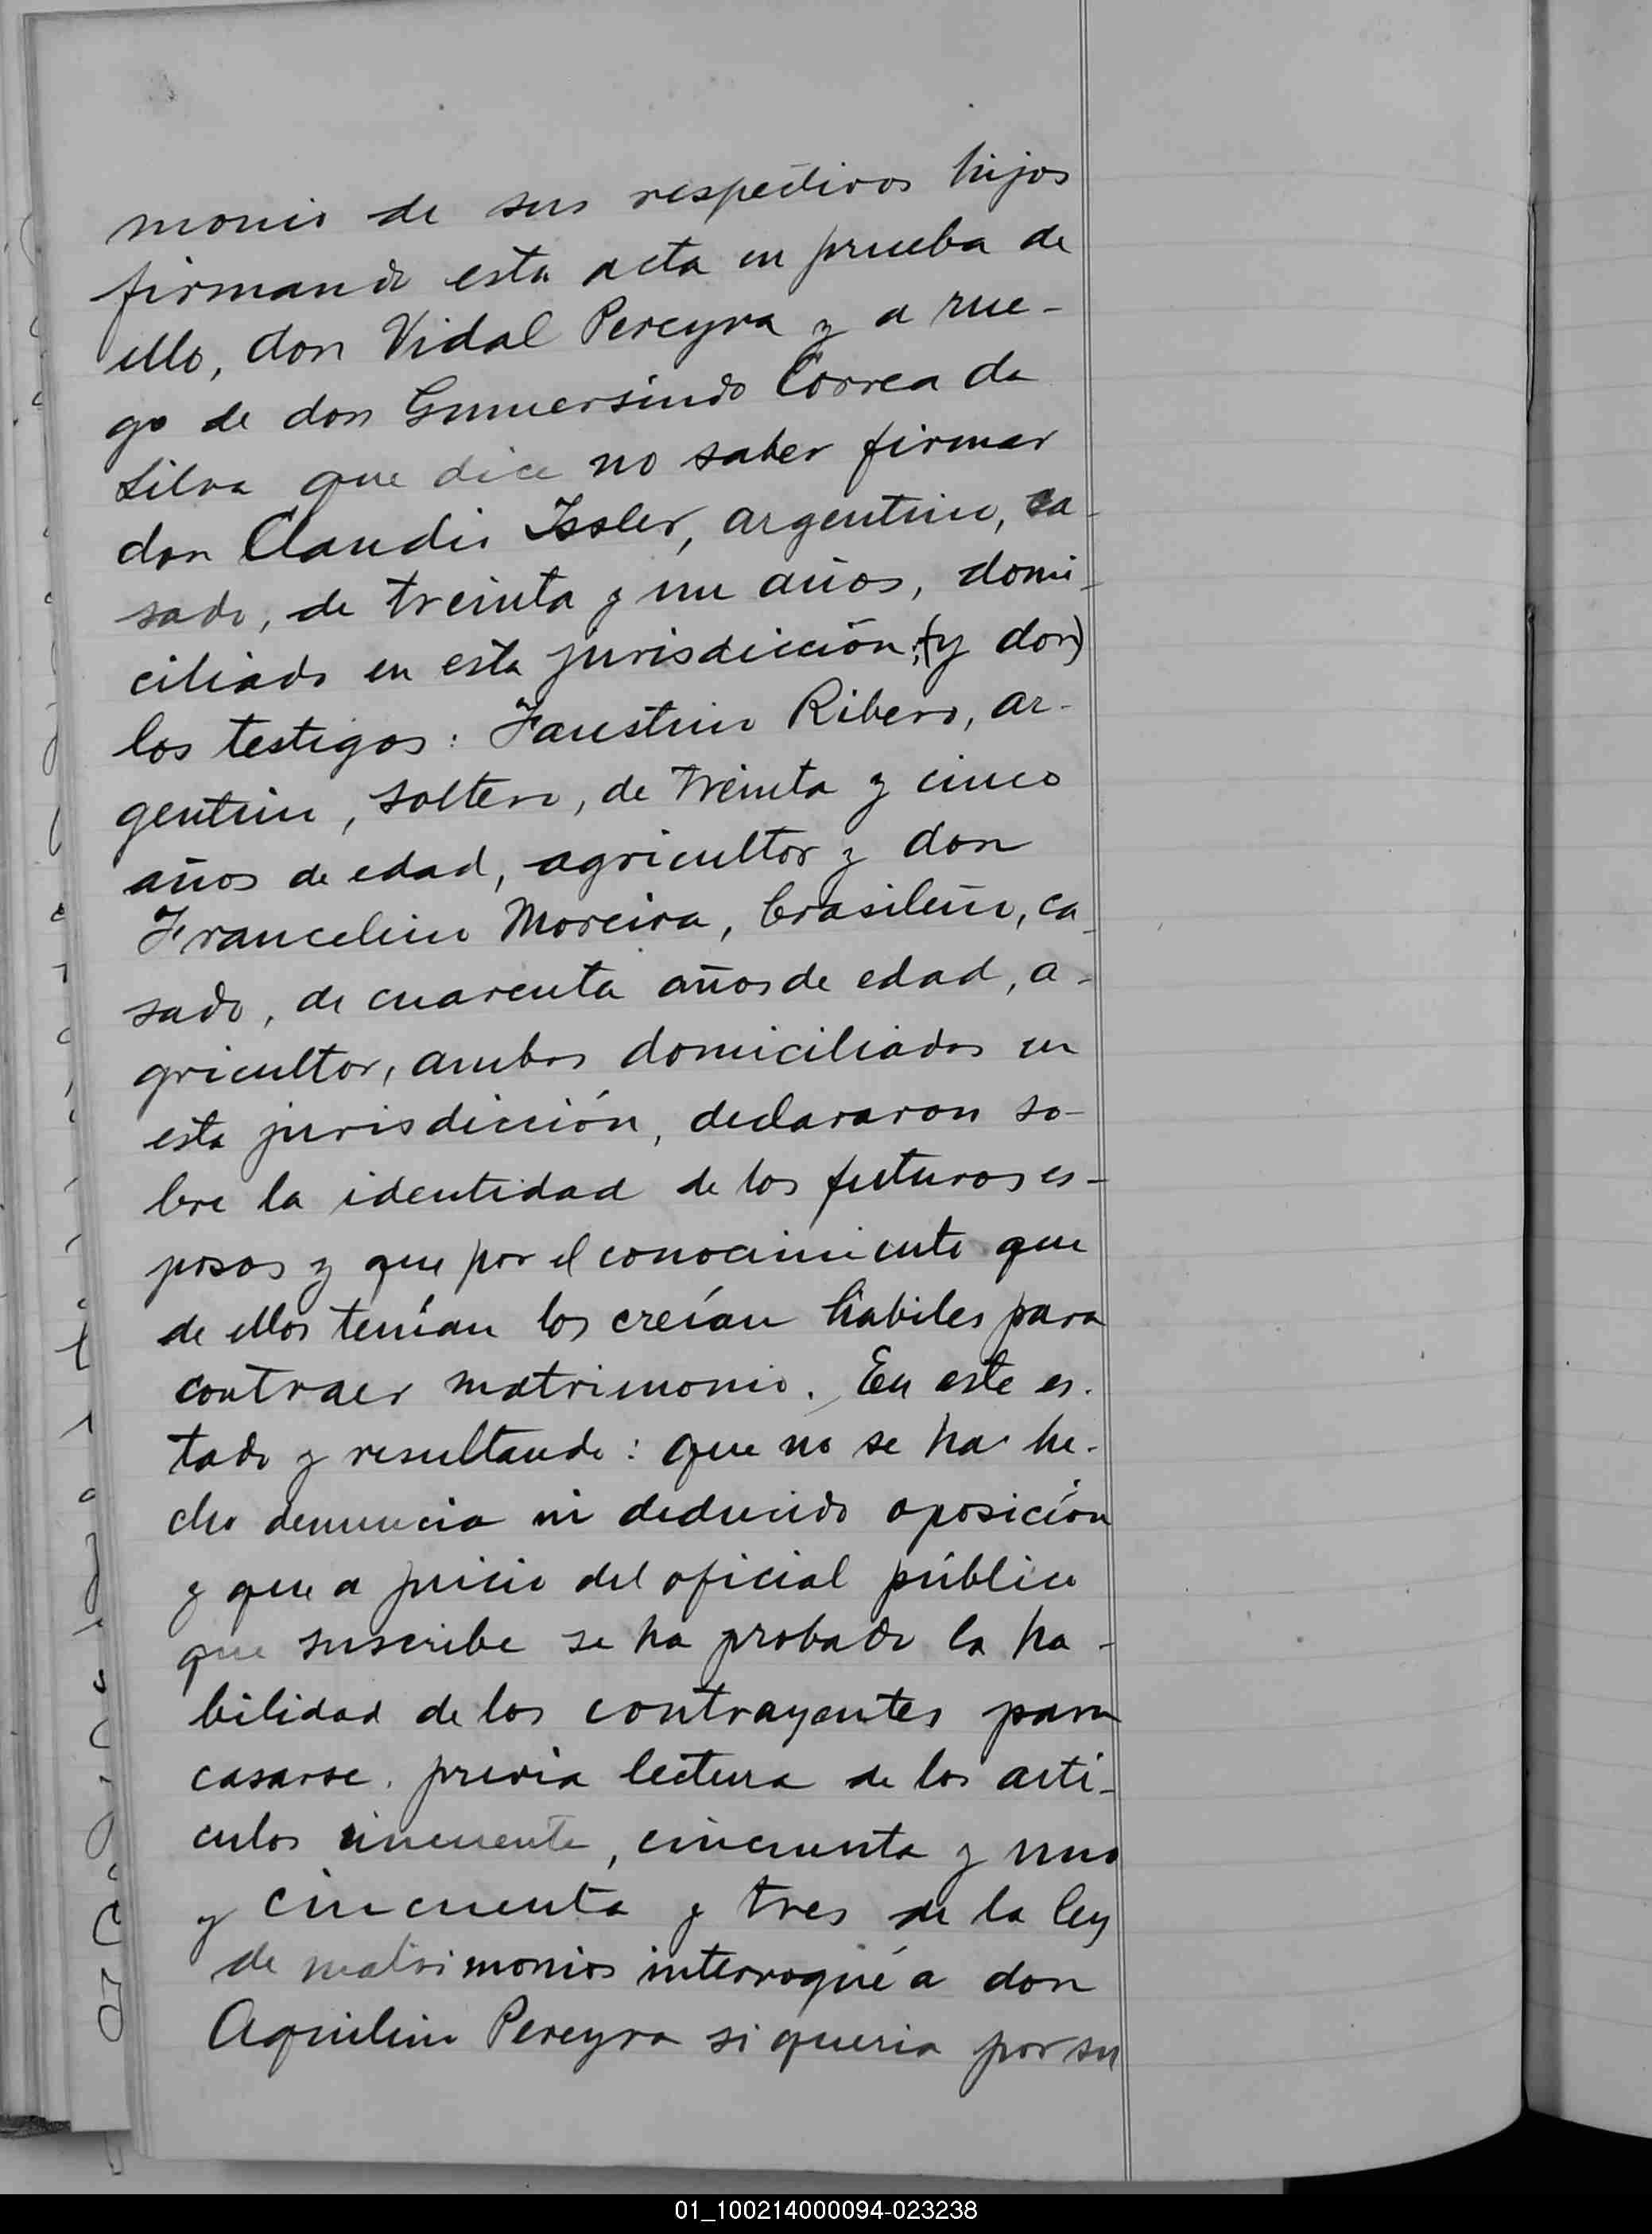 monio de sus respectivos hijos
firmando esta acta en prueba de
ello, don Vidal Pereyra y a rue-
go de don Gumersindo Correa da
Silva que dice no saber firmar
don Claudio Issler, argentino, ca-
sado, de treinta y un años, domi-
ciliado en esta jurisdicción; (y don)
los testigos: Faustino Ribero, ar-
gentino, soltero, de treinta y cinco
años de edad, agricultor y don
Francelino Moreira, brasileño, ca-
sado, de cuarenta años de edad, a-
gricultor, ambos domiciliados en
esta jurisdicción, declararon so-
bre la identidad de los futuros es-
posos y que por el conocimiento que
de ellos tenían los creían hábiles para
contraer matrimonio. En este es-
tado y resultando: que no se ha he-
cho denuncia ni deducido oposición
y que a juicio del oficial público
que suscribe se ha probado la ha-
bilidad de los contrayentes para
casarse, previa lectura de los artí-
culos cincuenta, cincuenta y uno
y cincuenta y tres de la ley
de matrimonios interrogué a don
Aquilino Pereyra si queria por su
01_100214000094-023238